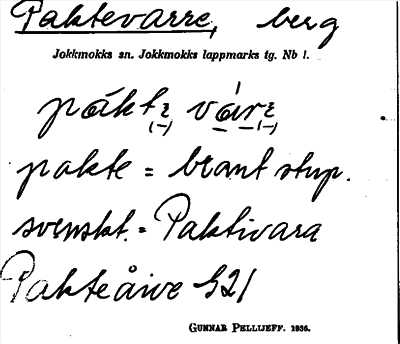 Paktevarre, berg
Jokkmokks sn. Jokkmokks lappmarks tg. Nb l.
pákte várɛ
(-) (-)
pakte = brant stup.
svenskt. = Paktivara
Pakteåive G21
GUNNAR PELLIJEFF. 1936.